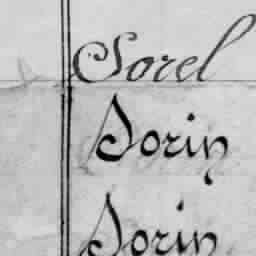 Sorel
Sorin
Sorin